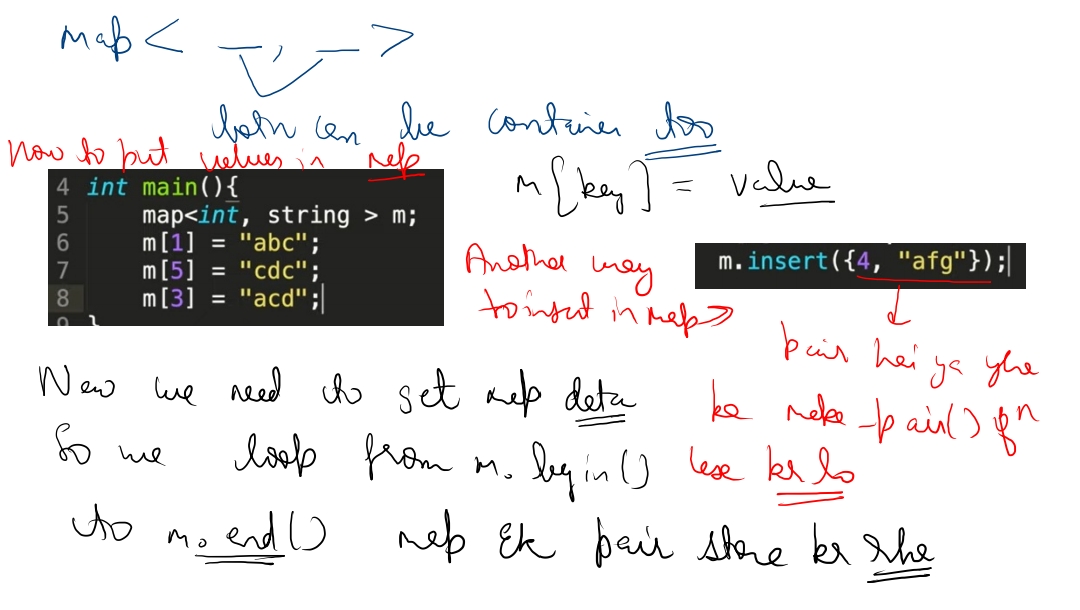 map < __, __ >
both can be container too
How to put values in map
m[key] = value
4 int main(){
5 map<int, string > m;
6 m[1] = "abc";
7 m[5] = "cdc";
8 m[3] = "acd";
9 }
Another way
to insert in map >
m.insert({4, "afg"});
pair hai ya yha
ke make_pair() fn
use kr lo
Now we need to get map data
So we loop from m.begin()
to m.end() map ek pair store kr rha